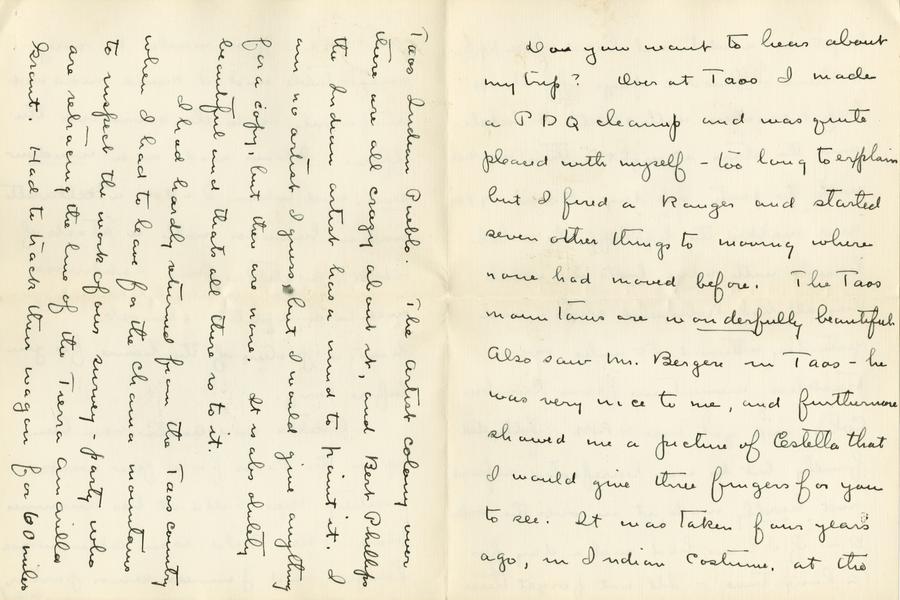 Don you want to hear about
my trip? Over at Taos I made
a PDQ cleanup and was quite
pleased with myself - too long to explain
but I fired a Ranger and started
seven other things to moving where
none had moved before. The Taos
mountains are wonderfully beautiful.
Also saw Mr. Bergere in Taos - he
was very nice to me, and furthermore
showed me a picture of Estella that
I would give three fingers for you
to see. It was taken four years
ago, in Indian costume, at the
Taos Indian Pueblo. The artist colony over
there are all crazy about it, and Bert Phillips
the Indian artist has a mind to paint it. I
am no artist I guess, but I would give anything
for a copy, but there are none. It is absolutely
beautiful and thats all there is to it.
I had hardly returned from the Taos country
when I had to leave for the Chama mountains
to inspect the work of our survey-party who
are retracing the line of the Tierra Amarilla
Grant. Had to track their wagon for 60 miles